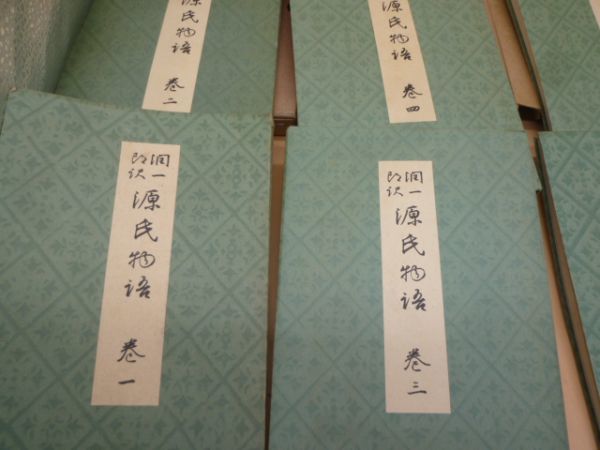 源氏物語 巻二
源氏物語 巻四
潤一郎訳 源氏物語 巻一
潤一郎訳 源氏物語 巻三